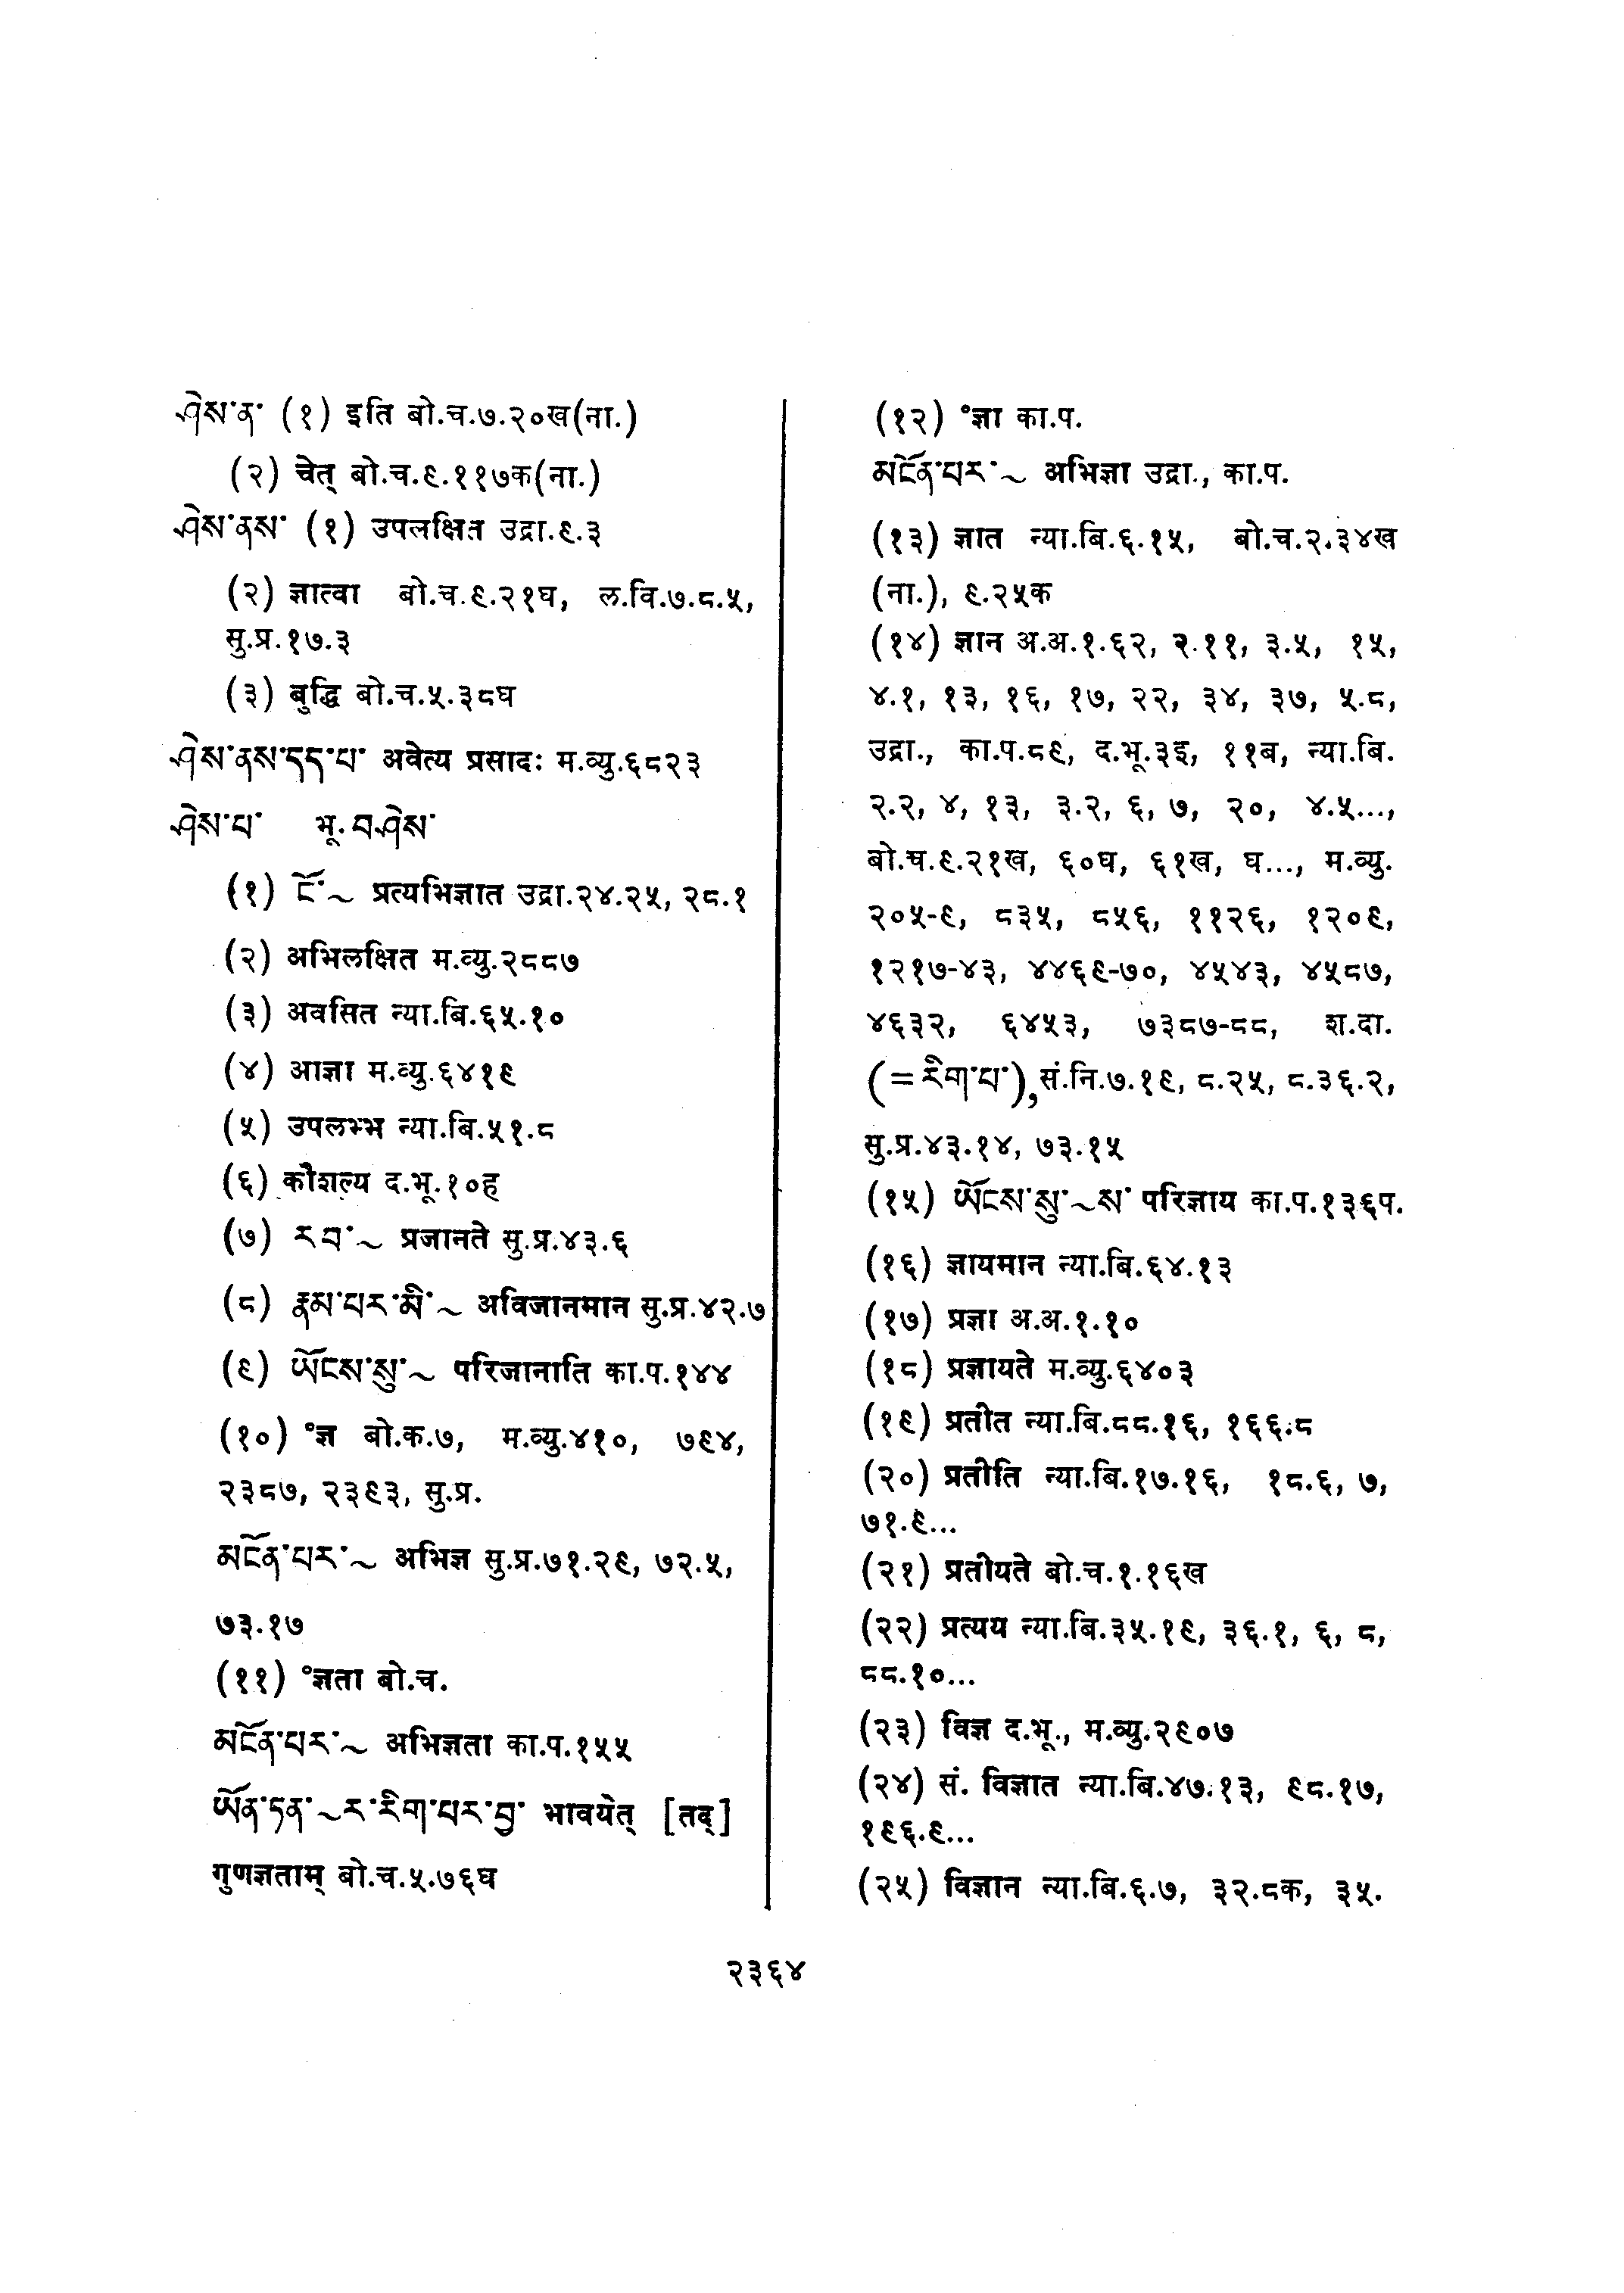 ཤེས་ན་ (१) इति बो.च.७.२०ख(ना.)
(२) चेत् बो.च.९.११७क(ना.)
ཤེས་ནས་ (१) उपलक्षित उद्रा.९.३
(२) ज्ञात्वा बो.च.९.२१घ, ल.वि.७.८.५,
सु.प्र.१७.३
(३) बुद्धि बो.च.५.३८घ
ཤེས་ནས་དད་པ་ अवेत्य प्रसादः म.व्यु.६८२३
ཤེས་པ་ भू. བཤེས་
(१) ངོ་~ प्रत्यभिज्ञात उद्रा.२४.२५, २८.१
(२) अभिलक्षित म.व्यु.२८८७
(३) अवसित न्या.बि.६५.१०
(४) आज्ञा म.व्यु.६४१९
(५) उपलम्भ न्या.बि.५१.८
(६) कौशल्य द.भू.१०ह
(७) རབ་~ प्रजानते सु.प्र.४३.६
(८) རྣམ་པར་མི་~ अविजानमान सु.प्र.४२.७
(९) ཡོངས་སུ་~ परिजानाति का.प.१४४
(१०) °ज्ञ बो.क.७, म.व्यु.४१०, ७९४,
२३८७, २३९३, सु.प्र.
མངོན་པར་~ अभिज्ञ सु.प्र.७१.२९, ७२.५,
७३.१७
(११) °ज्ञता बो.च.
མངོན་པར་~ अभिज्ञता का.प.१५५
ཡོན་ཏན་~ར་རིག་པར་བྱ་ भावयेत् [तद्]
गुणज्ञताम् बो.च.५.७६घ
(१२) °ज्ञा का.प.
མངོན་པར་~ अभिज्ञा उद्रा., का.प.
(१३) ज्ञात न्या.बि.६.१५, बो.च.२.३४ख
(ना.), ९.२५क
(१४) ज्ञान अ.अ.१.६२, २.११, ३.५, १५,
४.१, १३, १६, १७, २२, ३४, ३७, ५.८,
उद्रा., का.प.८९, द.भू.३इ, ११ब, न्या.बि.
२.२, ४, १३, ३.२, ६, ७, २०, ४.५...,
बो.च.९.२१ख, ६०घ, ६१ख, घ..., म.व्यु.
२०५-९, ८३५, ८५६, ११२६, १२०९,
१२१७-४३, ४४६९-७०, ४५४३, ४५८७,
४६३२, ६४५३, ७३८७-८८, श.दा.
(=རིག་པ་), सं.नि.७.१९, ८.२५, ८.३६.२,
सु.प्र.४३.१४, ७३.१५
(१५) ཡོངས་སུ་~ས་ परिज्ञाय का.प.१३६प.
(१६) ज्ञायमान न्या.बि.६४.१३
(१७) प्रज्ञा अ.अ.१.१०
(१८) प्रज्ञायते म.व्यु.६४०३
(१९) प्रतीत न्या.बि.८८.१६, १६६.८
(२०) प्रतीति न्या.बि.१७.१६, १८.६, ७,
७१.९...
(२१) प्रतीयते बो.च.१.१६ख
(२२) प्रत्यय न्या.बि.३५.१९, ३६.१, ६, ८,
८८.१०...
(२३) विज्ञ द.भू., म.व्यु.२९०७
(२४) सं. विज्ञात न्या.बि.४७.१३, ९८.१७,
१९६.९...
(२५) विज्ञान न्या.बि.६.७, ३२.८क, ३५.
२३६४